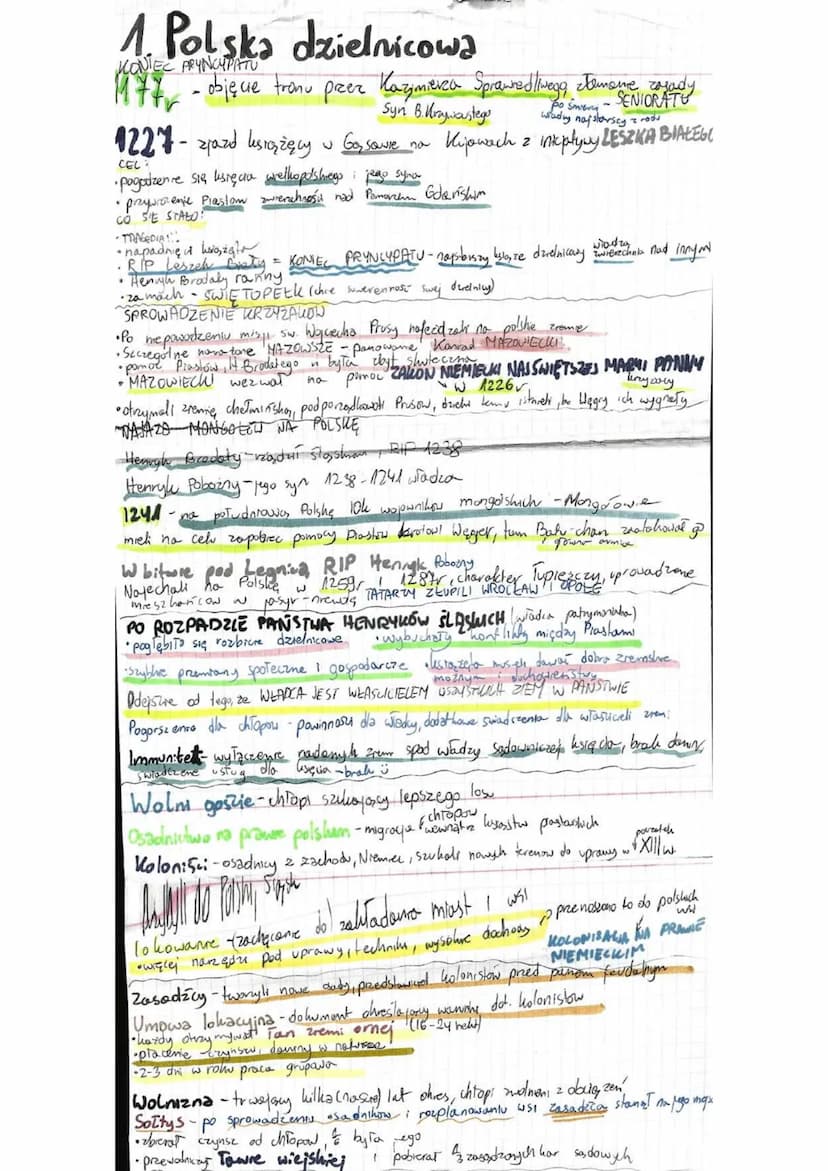 1. Polska dzielnicowa
KONIEC PRYNCYPATU
1177r - objęcie tronu przez Kazimierza Sprawiedliwego, złamanie zasady
SENIORATU
syn B. Krzywoustego
po śmierci władcy najstarszy z rodu
1227 - zjazd książęcy w Gąsawie na Kujawach z inicjatywy LESZKA BIAŁEGO
CEL:
• pogodzenie się księcia wielkopolskiego i jego syna
• przywrócenie Piastom zwierzchności nad Pomorzem Gdańskim
CO SIĘ STAŁO:
• TRAGEDIA!!:
• napadnięci książęta
• RIP Leszek Biały = KONIEC PRYNCYPATU - najstarszy książe dzielnicowy władza zwierzchnia nad innymi
• Henryk Brodaty ranny
• zamach - ŚWIĘTOPEŁK (chce suwerenność swej dzielnicy)
SPROWADZENIE KRZYŻAKÓW
• Po niepowodzeniu misji św. Wojciecha Prusy najeżdżali na polskie ziemie
• Szczególnie narażone MAZOWSZE - panowanie Konrad MAZOWIECKI
• pomoc Piastów, H. Brodatego n była zbyt skuteczna
• MAZOWIECKI wezwał na pomoc ZAKON NIEMIECKI NAJŚWIĘTSZEJ MARYI PANNY
w 1226r krzyżacy
• otrzymali ziemię chełmińską, podporządkowali Prusów, dzięki temu istnieli, bo Węgry ich wygnały
NAJAZD MONGOŁÓW NA POLSKĘ
Henryk Brodaty - rządził śląskiem, RIP 1238
Henryk Pobożny - jego syn 1238-1241 władca
1241 - na południową Polskę 10k wojowników mongolskich - Mongołowie
mieli na celu zapobiec pomocy Piastów królowi Węgier, tam Batu-chan zaatakował
główna armia
W bitwie pod Legnicą RIP Henryk Pobożny
Najechali na Polskę w 1259r i 1287r, charakter łupieżczy, uprowadzone
mieszkańców w jasyr - niewolę TATARZY ZŁUPILI WROCŁAW I OPOLE
PO ROZPADZIE PAŃSTWA HENRYKÓW ŚLĄSKICH (władca patrymonialna)
• pogłębiło się rozbicie dzielnicowe • wybuchały konflikty między Piastami
• szybkie przemiany społeczne i gospodarcze • książęta musieli dawać dobra ziemskie
możnym i duchowieństwu
Odejście od tego, że WŁADCA JEST WŁAŚCICIELEM WSZYSTKICH ZIEM W PAŃSTWIE
Pogorszenie dla chłopów - powinności dla władcy, dodatkowe świadczenia dla właścicieli ziem
Immunitet - wyłączenie nadanych ziem spod władzy sądowniczej księcia, brak daniny
świadczone usług dla księcia - brak
Wolni goście - chłopi szukający lepszego losu
Osadnictwo na prawie polskim - migracja chłopów wewnątrz księstw piastowskich
Koloniści - osadnicy z zachodu, Niemiec, szukali nowych terenów do uprawy początek XIII w.
Przybyli do Polski, Śląsk
lokowanie - (zachęcanie do) zakładania miast i wsi
• więcej narzędzi pod uprawy, techniki, wysokie dochody
przenoszono to do polskich wsi
KOLONIZACJA NA PRAWIE NIEMIECKIM
Zasadźcy - tworzyli nowe osady, przedstawiciel kolonistów przed panem feudalnym
Umowa lokacyjna - dokument określający warunki dot. kolonistów
• każdy otrzymywał łan ziemi ornej (16-24 hekt)
• płacenie czynszu, daniny w naturze
• 2-3 dni w roku praca grupowa
Wolnizna - trwający kilka(naście) lat okres, chłopi zwolnieni z obciążeń
Sołtys - po sprowadzeniu osadników i rozplanowaniu wsi zasadźca stanął na jego miejscu
• zbierał czynsz od chłopów, 1/6 była jego
• przewodniczył Ławie wiejskiej i pobierał 1/3 zasądzonych kar sądowych